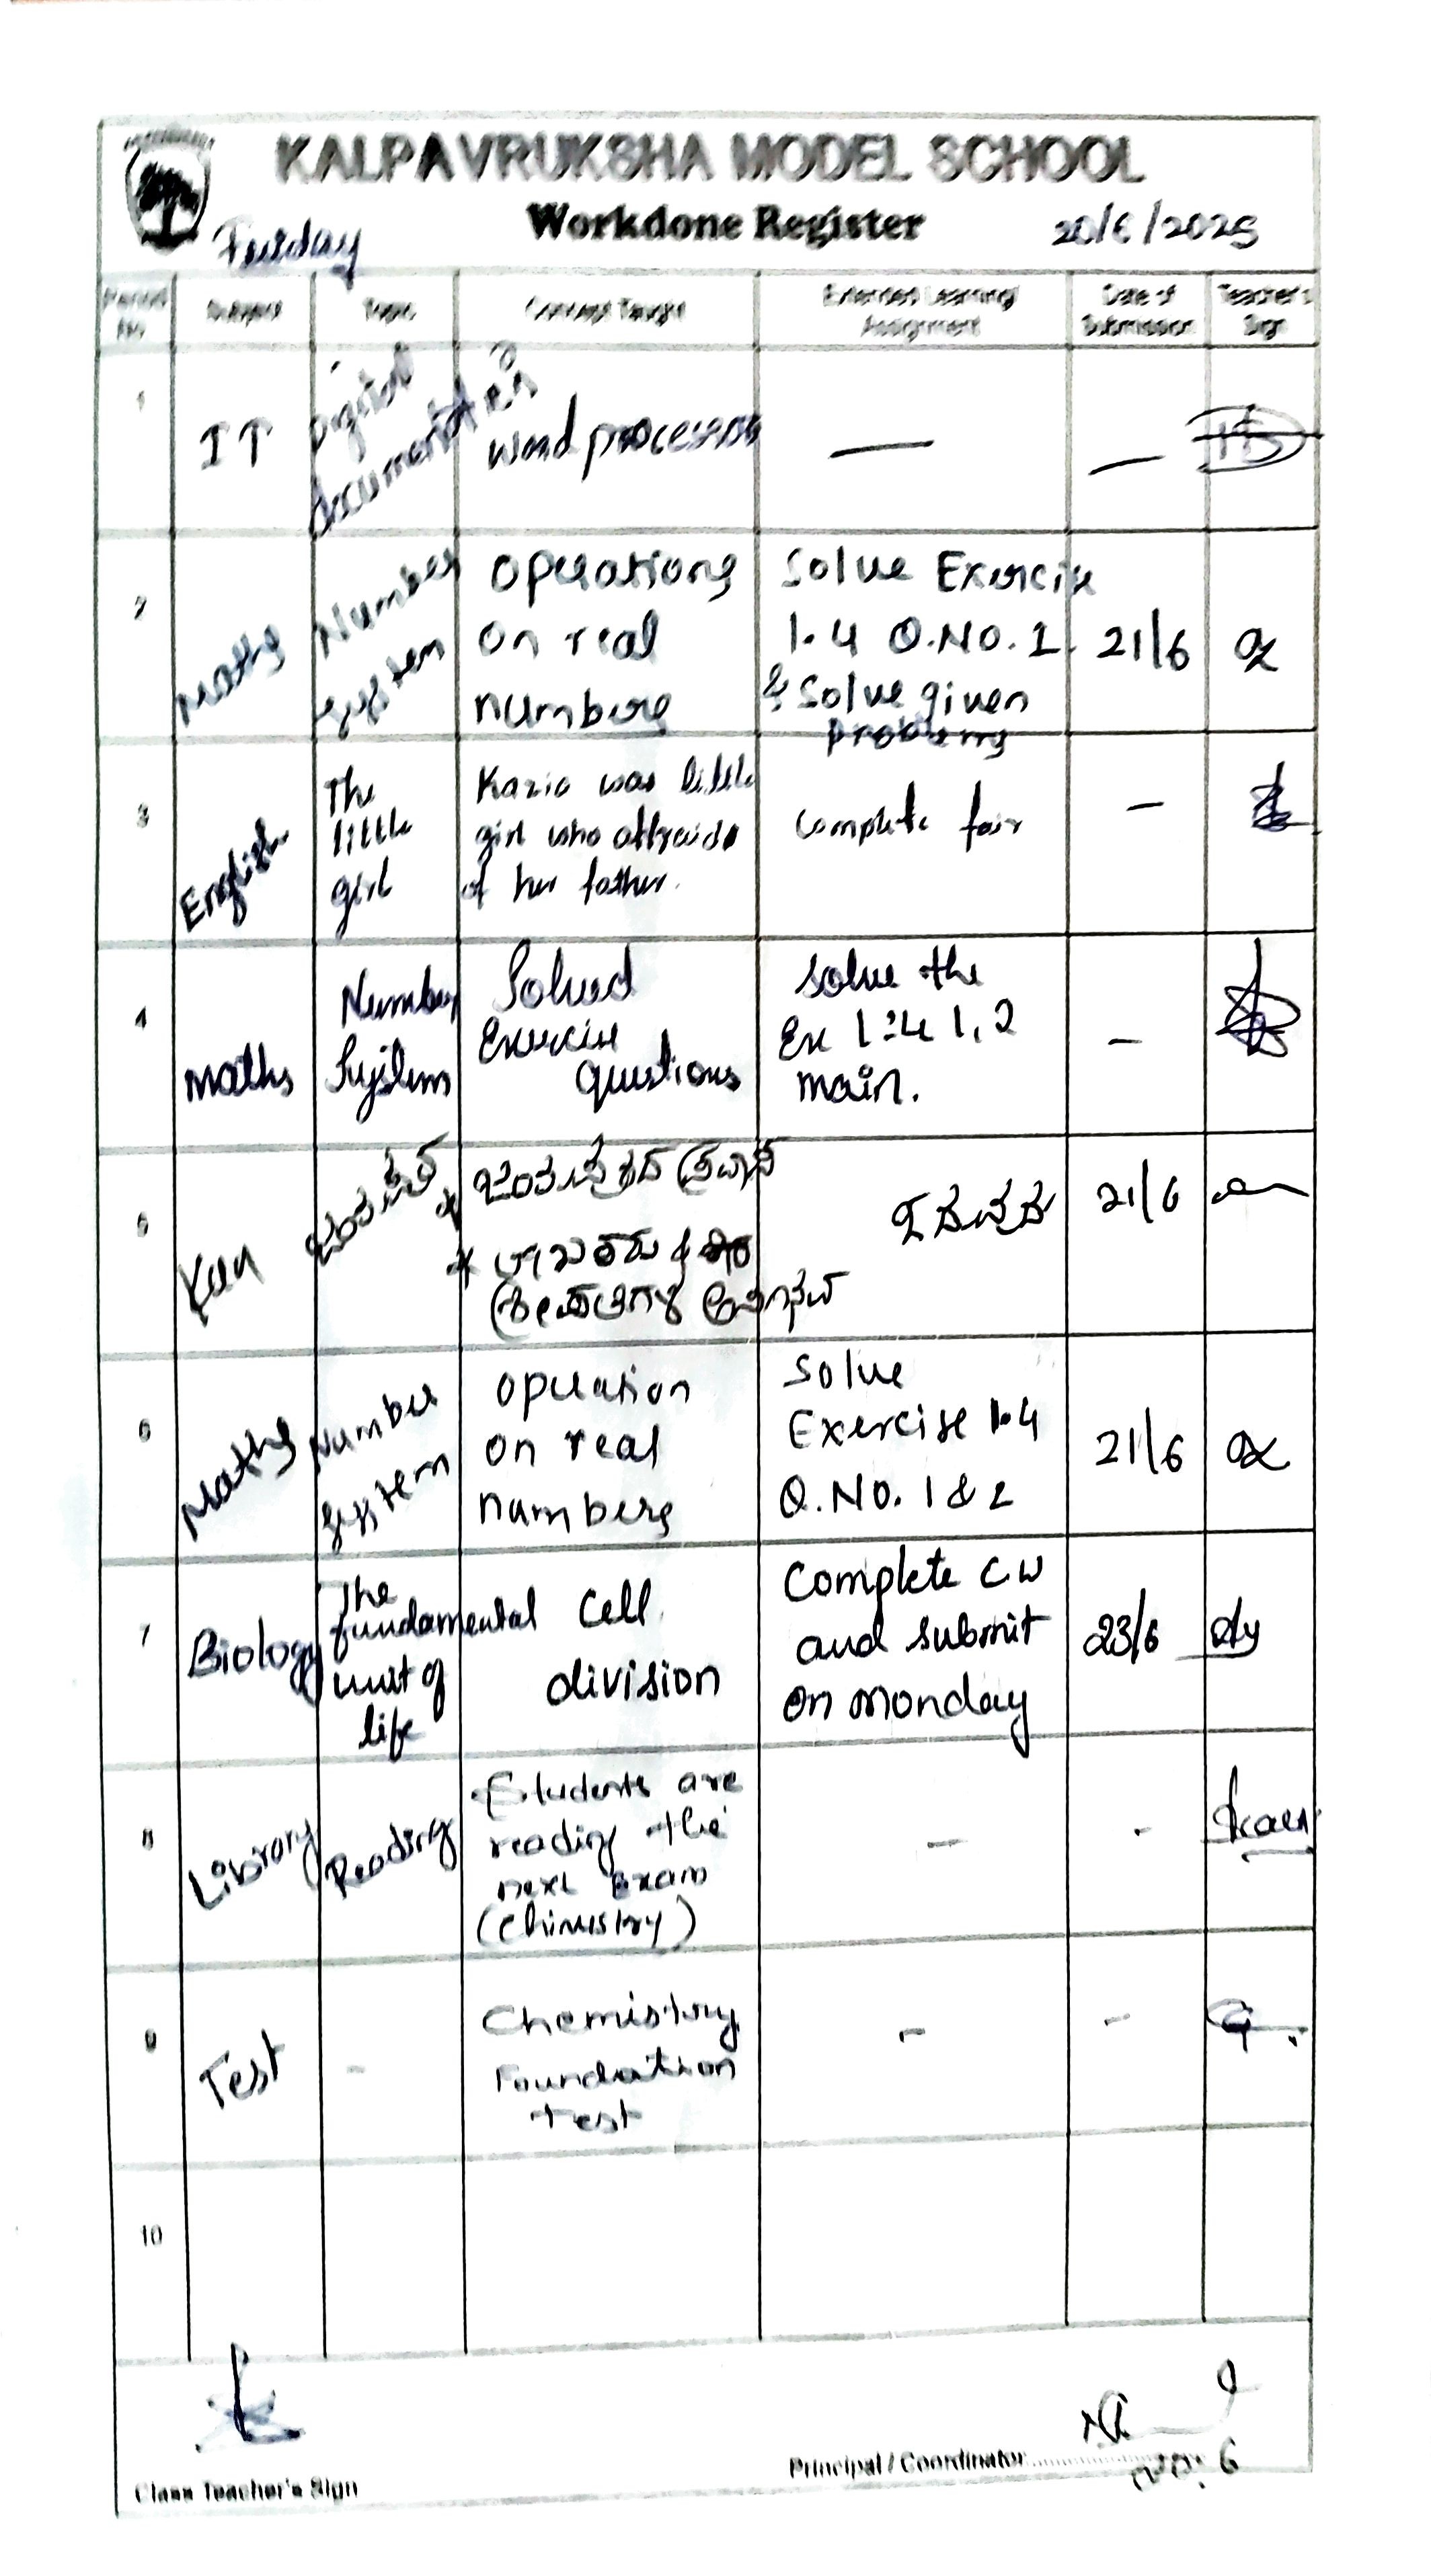 KALPAVRUKSHA MODEL SCHOOL
Workdone Register
20/6/2025
Period No
Subject
Topic
Concept Taught
Extended Learning/ Assignment
Date of Submission
Teacher's Sign
1
IT
Digital
word processor
—
—
2
Maths
Number
system
operations
on real
numbers
Solve Exercise
1.4 Q.NO.1
& Solve given
problems
21/6
3
English
The
little
girl
Kazia was little
girl who
of her father.
complete fair
—
4
Maths
Number
System
Solved
Exercise
questions
solve the
Ex 1.4 1,2
main.
—
5
Kan
21/6
6
Maths
Number
system
operation
on real
numbers
Solve
Exercise 1.4
Q.NO. 1 & 2
21/6
7
Biology
The
fundamental
unit of
life
Cell
division
Complete C.W
and submit
on Monday
23/6
8
Library
Reading
Students are
reading the
next Exam
(Chimistry)
—
-
9
Test
-
Chemistry
Foundation
test
-
-
10
Class Teacher's Sign
Principal / Coordinator